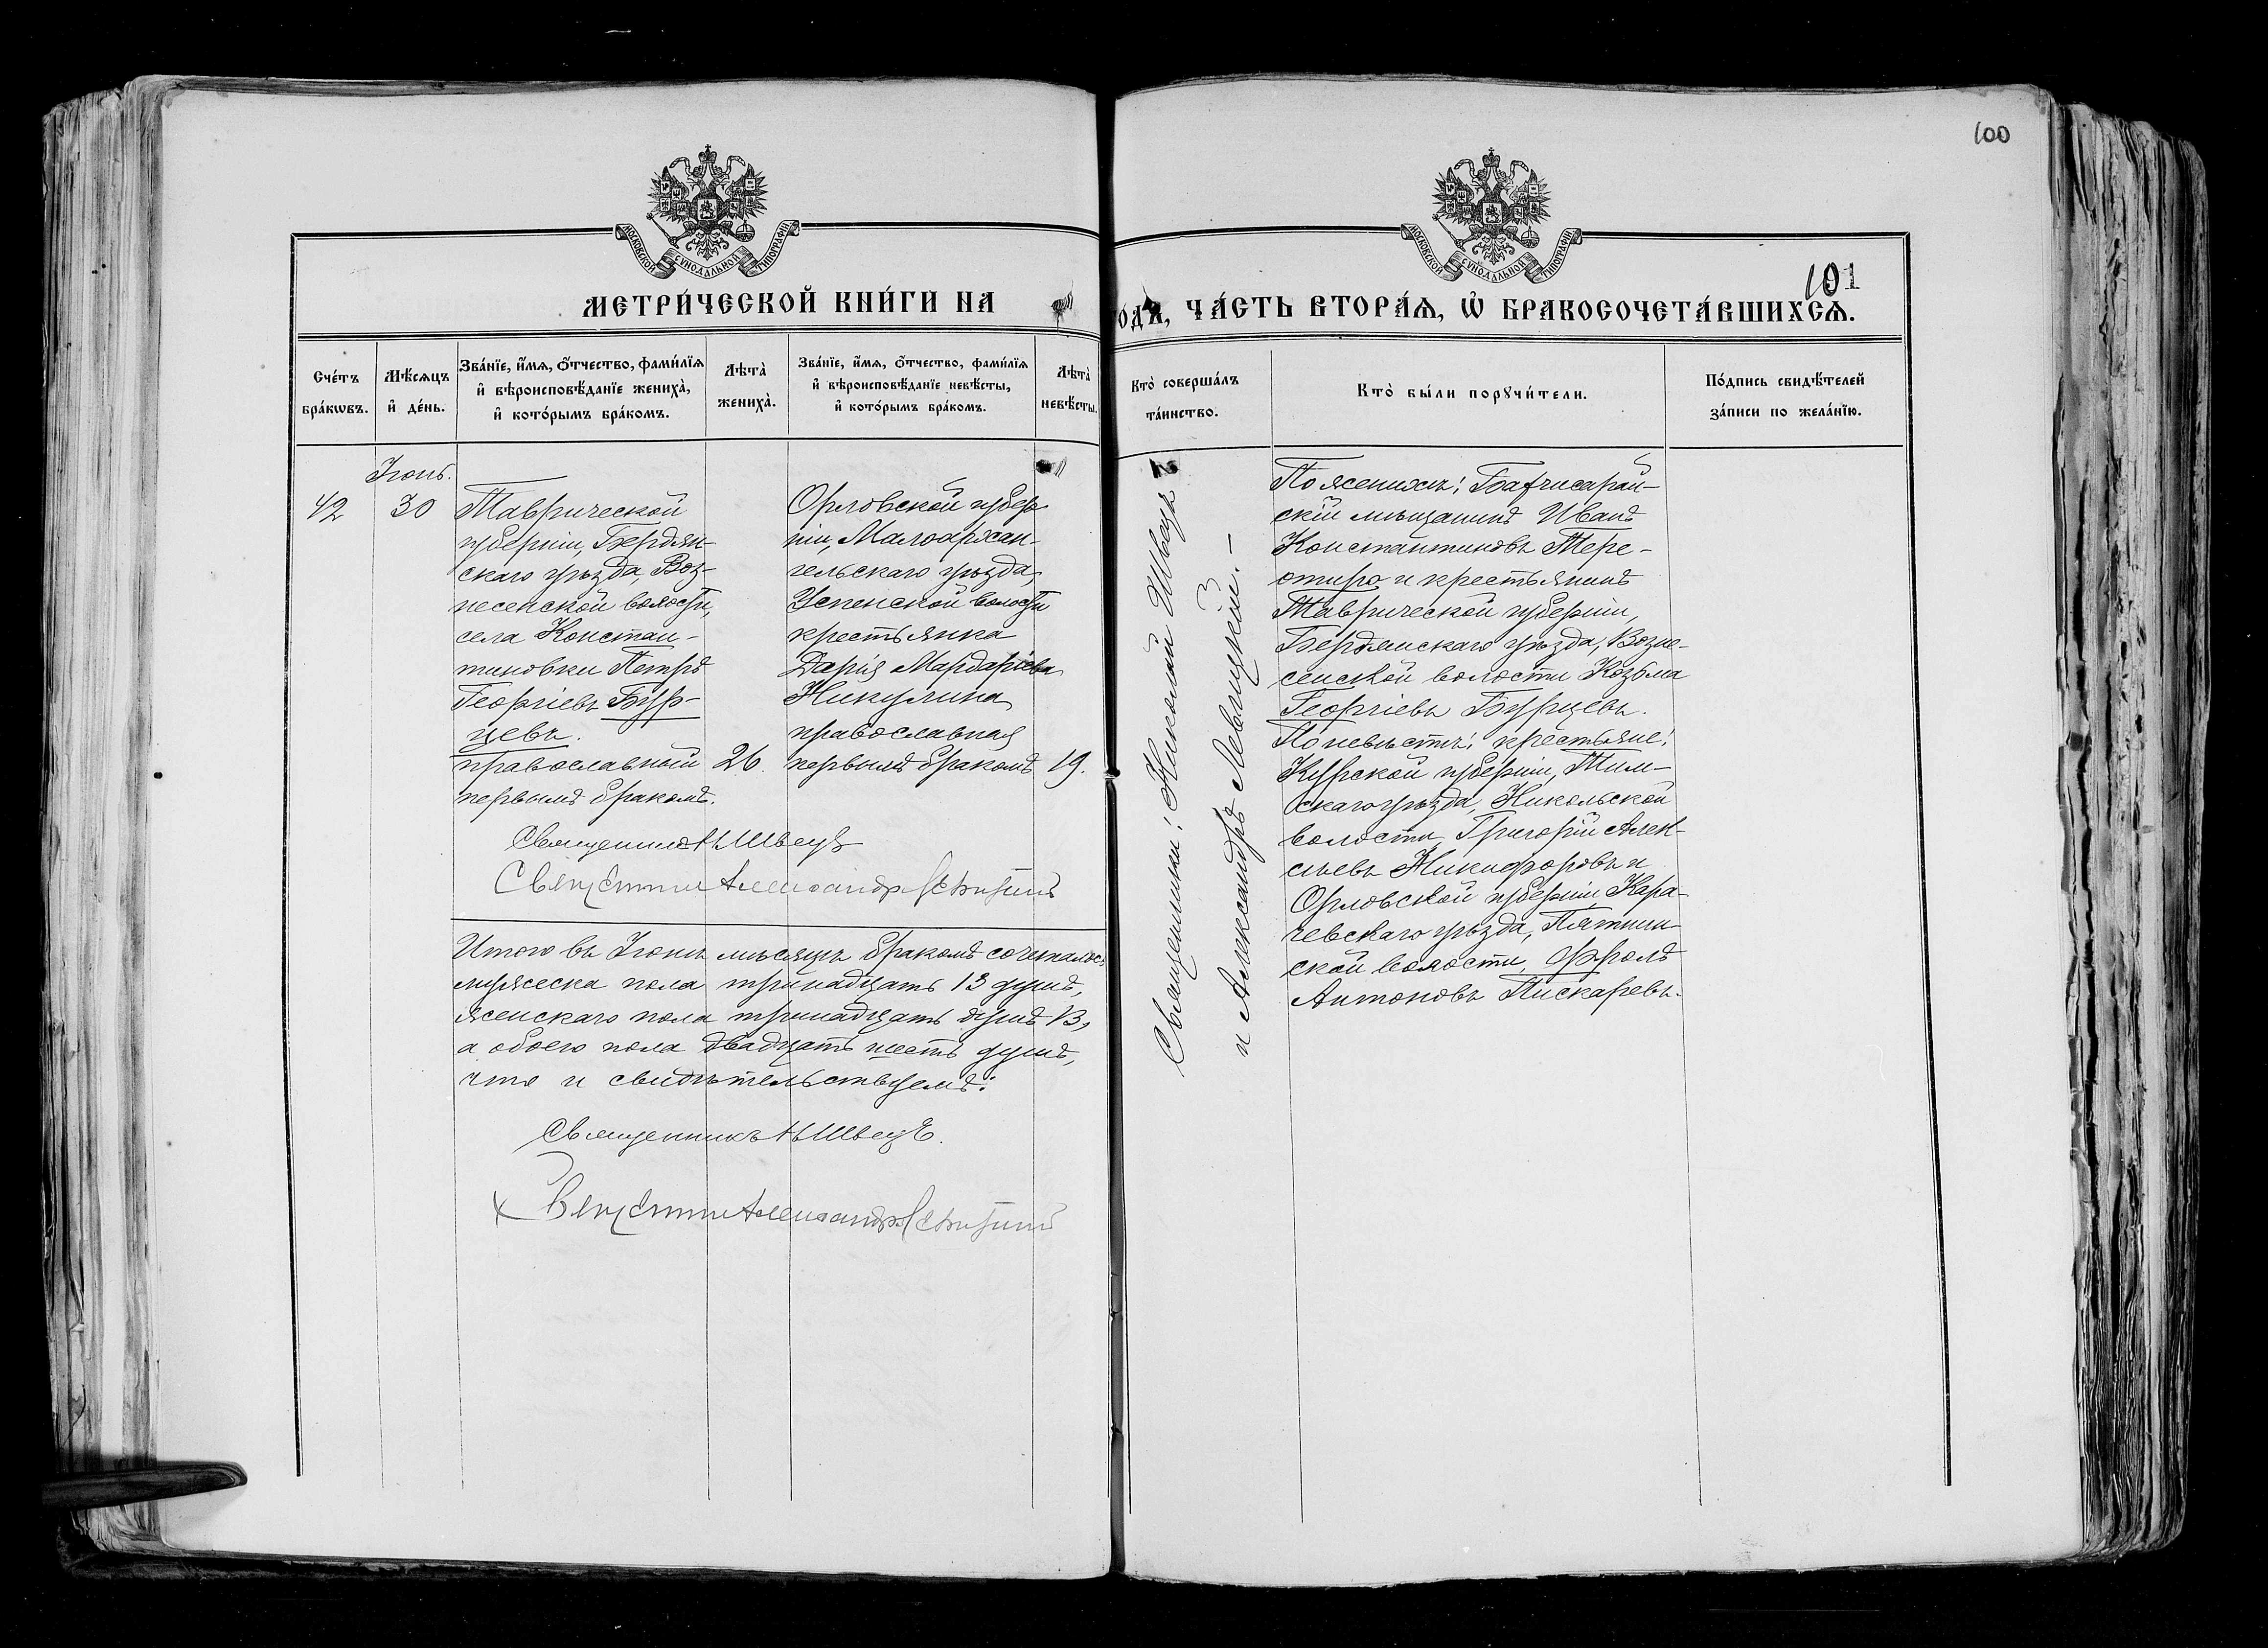 100
МОСКОВСКОЙ СѴНОДАЛЬНОЙ ТИПОГРАФІИ
МОСКОВСКОЙ СѴНОДАЛЬНОЙ ТИПОГРАФІИ
101
МЕТРИ́ЧЕСКОЙ КНИ́ГИ НА
ОДЪ, ЧА́СТЬ ВТОРА́Я, Ѡ БРАКОСОЧЕТА́ВШИХСЯ.
Сче́тъ бра́кѡвъ.
Мѣ́сяцъ и҆ де́нь.
Зва́нїе, и҆́мя, ѻ҆́тчество, фами́лїя
и҆ вѣроисповѣ́данїе жениха̀,
и҆ кото́рымъ бра́комъ.
Лѣта̀ жениха̀.
Зва́нїе, и҆́мя, ѻ҆́тчество, фами́лїя
и҆ вѣроисповѣ́данїе невѣ́сты,
и҆ кото́рымъ бра́комъ.
Лѣта̀ невѣ́сты.
Кто̀ соверша́лъ та́инство.
Кто̀ бы́ли порꙋчи́тели.
По́дпись свидѣ́телей за́писи по жела́нїю.
Іюнь.
42
30
Таврической
губерніи, Бердян-
скаго уѣзда, Воз-
несенской волости,
села Констан-
тиновки Петръ
Георгіевъ Бур-
цевъ.
православный
первымъ бракомъ.
26.
Орловской губер
ніи, Малоархан-
гельскаго уѣзда,
Успенской волости
крестьянка
Дарія Мардаріева
Никулина
православная
первымъ бракомъ
19.
Священники: Николай Швецъ
и Александръ Левицкій. —
По женихѣ: Бахчисарай-
скій мѣщанинъ Иванъ
Константиновъ Тере-
отиро и крестьянинъ
Таврической губерніи,
Бердянскаго уѣзда, Возне-
сенской волости Козьма
Георгіевъ Бурцевъ.
По невѣстѣ: крестьяне:
Курской губерніи, Тим-
скаго уѣзда, Никольской
волости Григорій Алек-
сѣевъ Никифоровъ и
Орловской губерніи, Кара-
чевскаго уѣзда, Пятниц-
кой волости, Фролъ
Антоновъ Пискаревъ.
Священникъ Н Швецъ
Священник Александр Левицкій
Итого въ Іюнѣ мѣсяцѣ бракомъ сочеталось
мужеска пола тринадцать 13 душъ,
женскаго пола тринадцать душъ 13,
а обоего пола двадцать шесть душъ,
что и свидѣтельствуемъ:
Священникъ Н Швецъ.
Священник Александр Левицкій